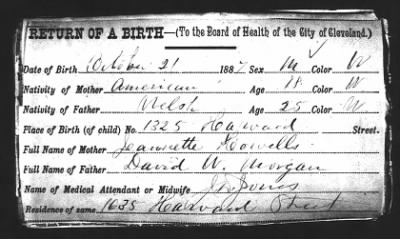 RETURN OF A BIRTH—(To the Board of Health of the City of Cleveland.)
Date of Birth October 21 1887 Sex M Color W
Nativity of Mother American Age Color W
Nativity of Father Welsh Age 25 Color W
Place of Birth (of child) No. 1325 Harvard Street.
Full Name of Mother Jeannette Howells
Full Name of Father David W. Morgan
Name of Medical Attendant or Midwife Jones
Residence of same 1635 Harvard Street